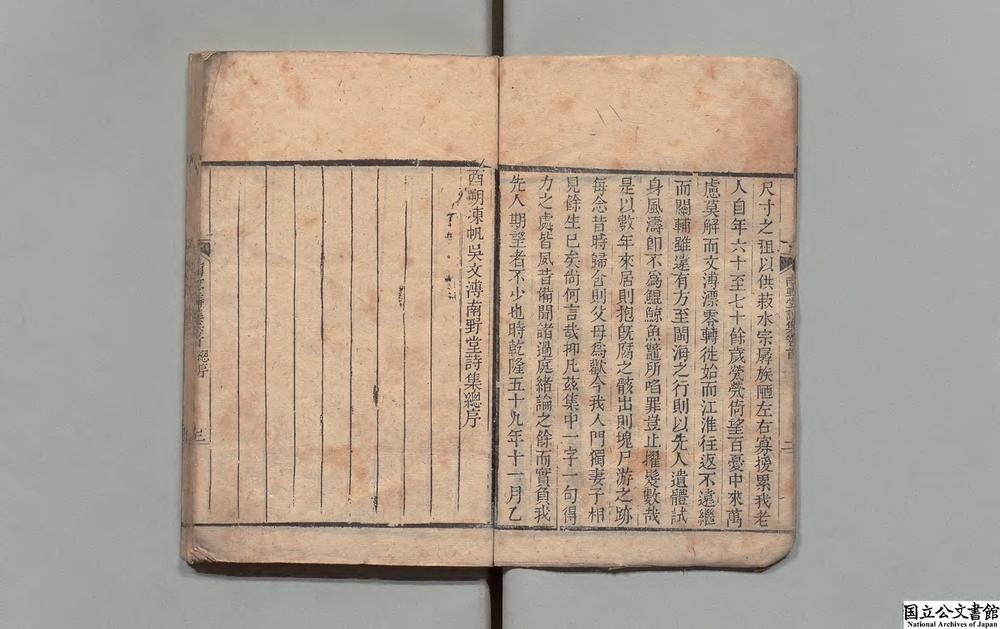 尺寸之 狙以供菽水宗孱族陋左右寡援累我老
人自年六十至七十餘歲煢煢倚望百憂中來萬
慮莫解而文溥漂零轉徙始而江淮往返不遠繼
而關輔雖遠有方至閩海之行則以先人遺體試
身風濤卽不爲鯤鯨魚鼈所啗罪豈止擢髮數哉
是以數年來居則抱旣腐之骸出則塊尸游之跡
每念昔時歸舍則父母爲歡今我入門獨妻子相
見餘生已矣尙何言哉抑凡茲集中一字一句得
力之處皆夙昔備聞諸過庭緒論之餘而實負我
先人期望者不少也時乾隆五十九年十一月乙
酉朔涷帆吳文溥南野堂詩集總序
南野堂詩集卷首
二
南野堂詩集卷首 總序
三
国立公文書館
National Archives of Japan